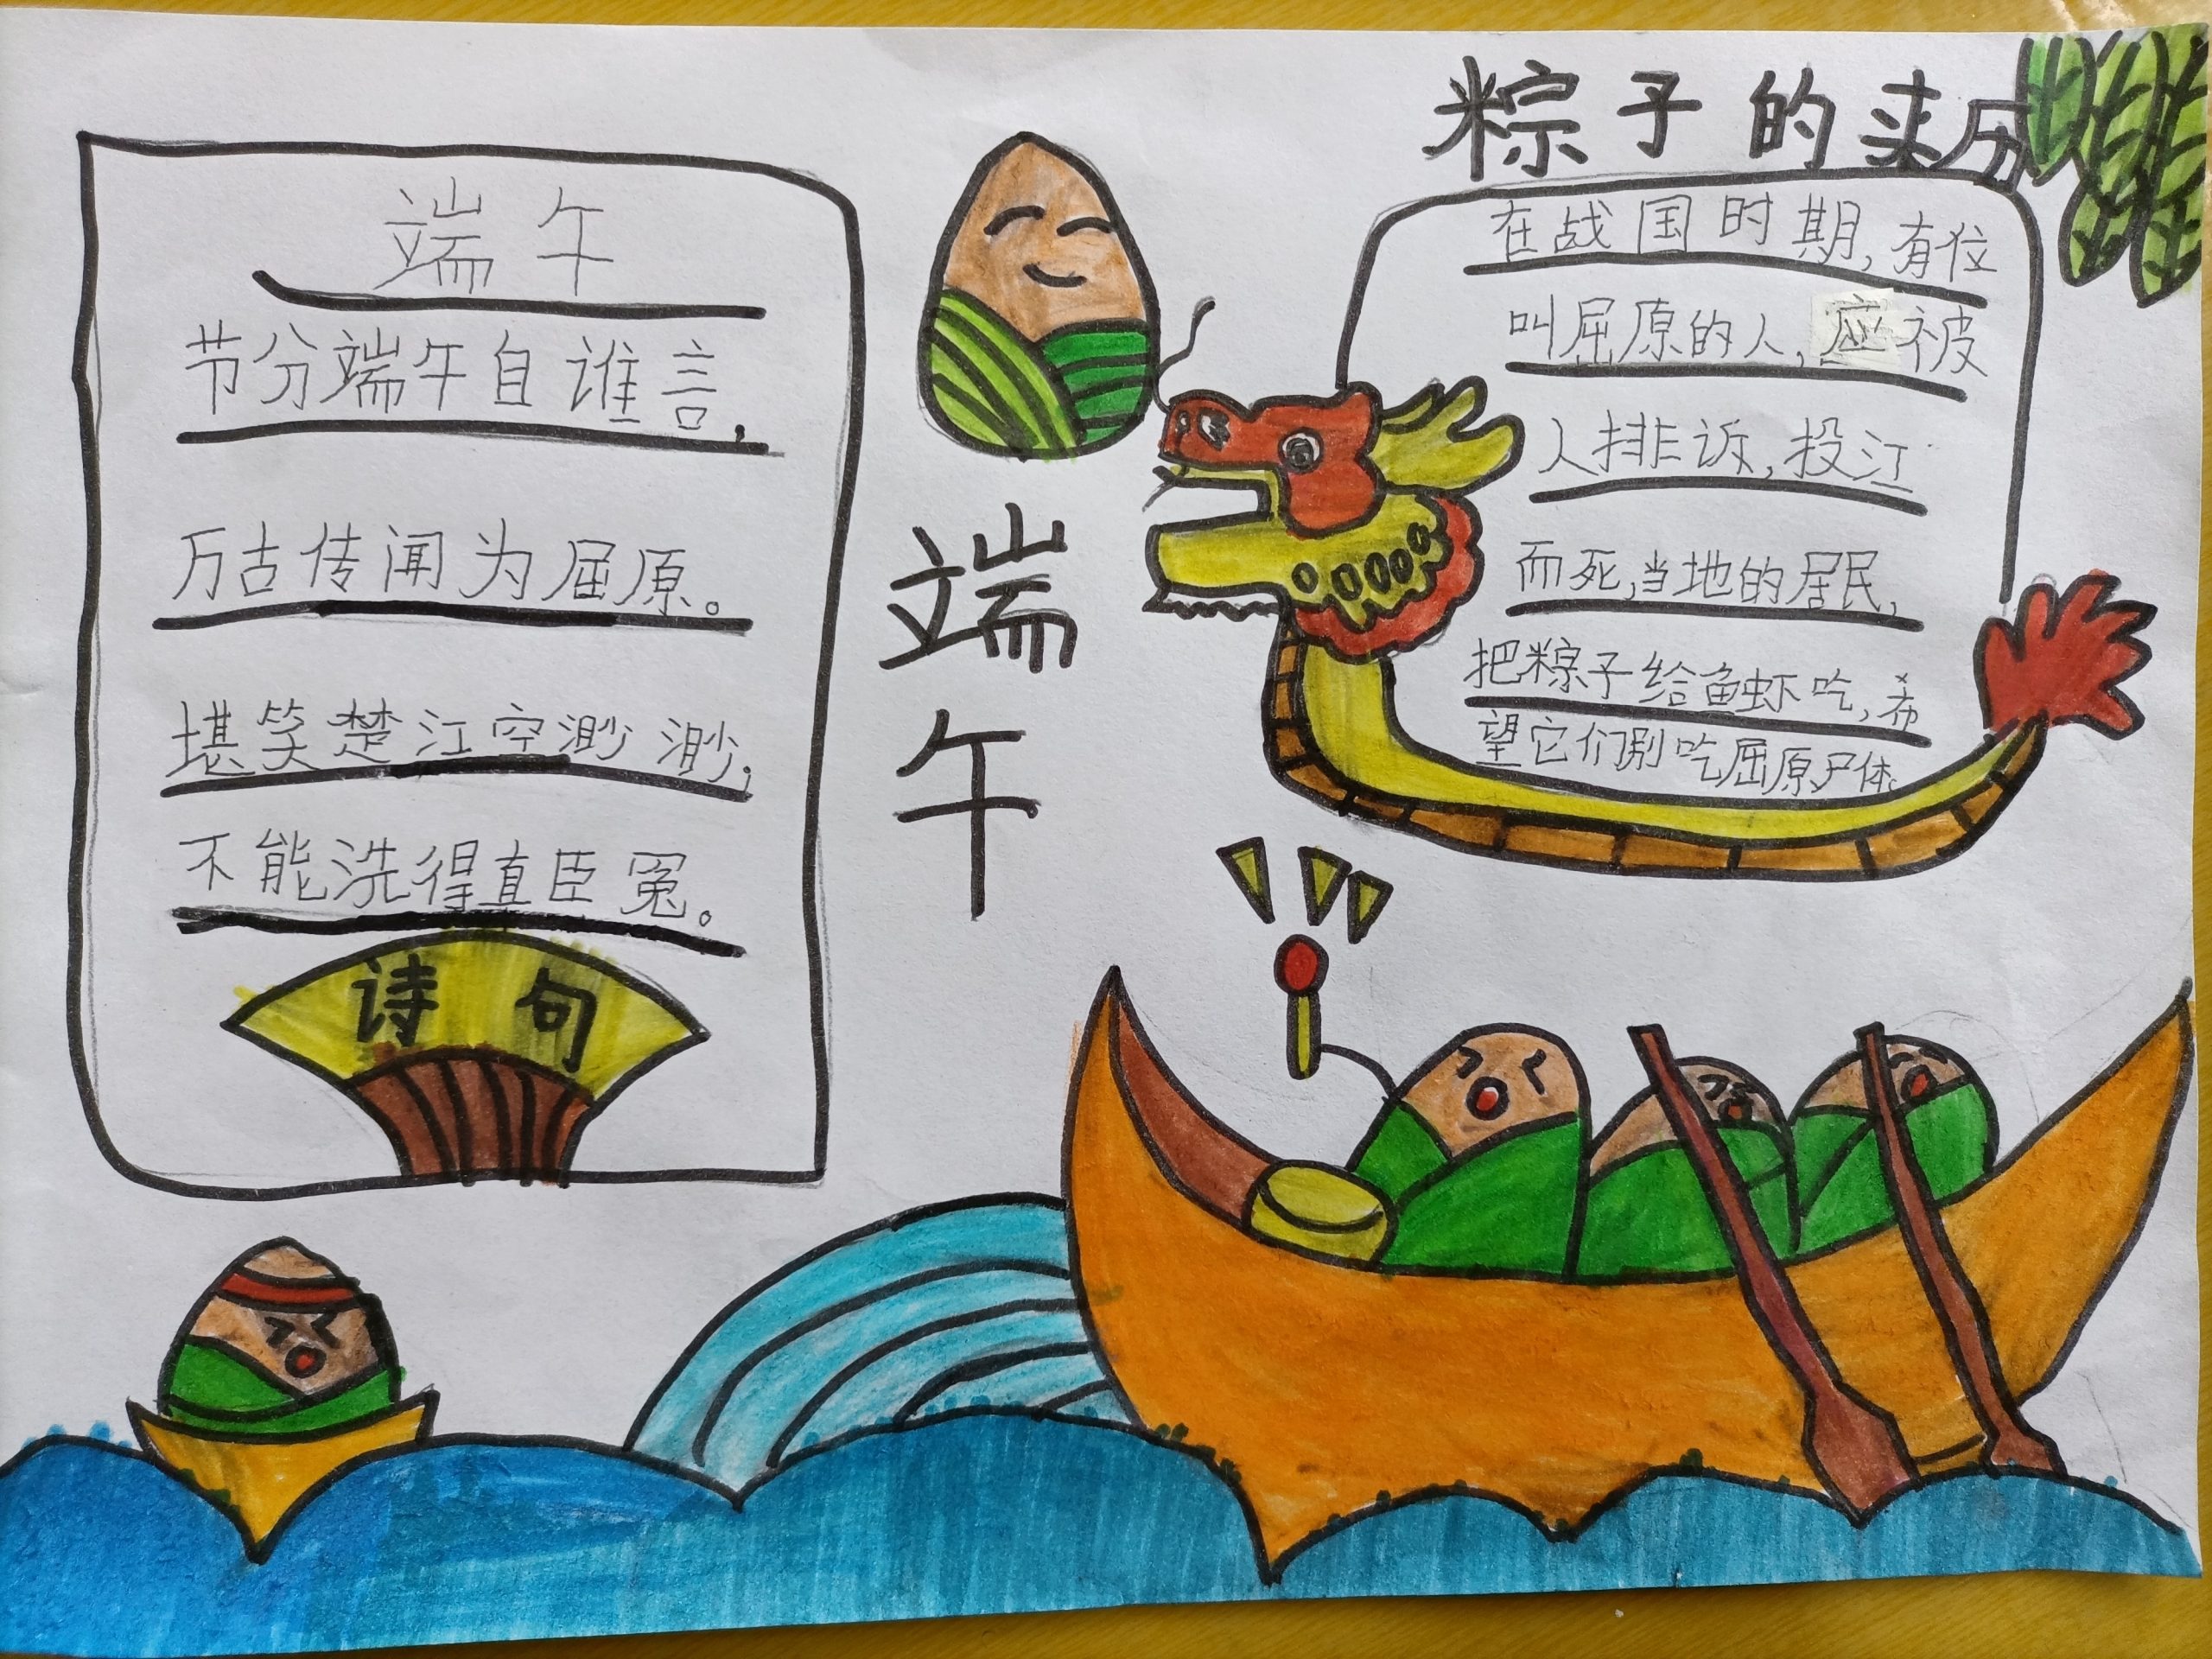 端午
节分端午自谁言,
万古传闻为屈原。
堪笑楚江空渺渺,
不能洗得直臣冤。
诗句
端午
粽子的来历
在战国时期,有位
叫屈原的人,应被
人排诉,投江
而死,当地的居民,
把粽子给鱼虾吃,希
望它们别吃屈原尸体。